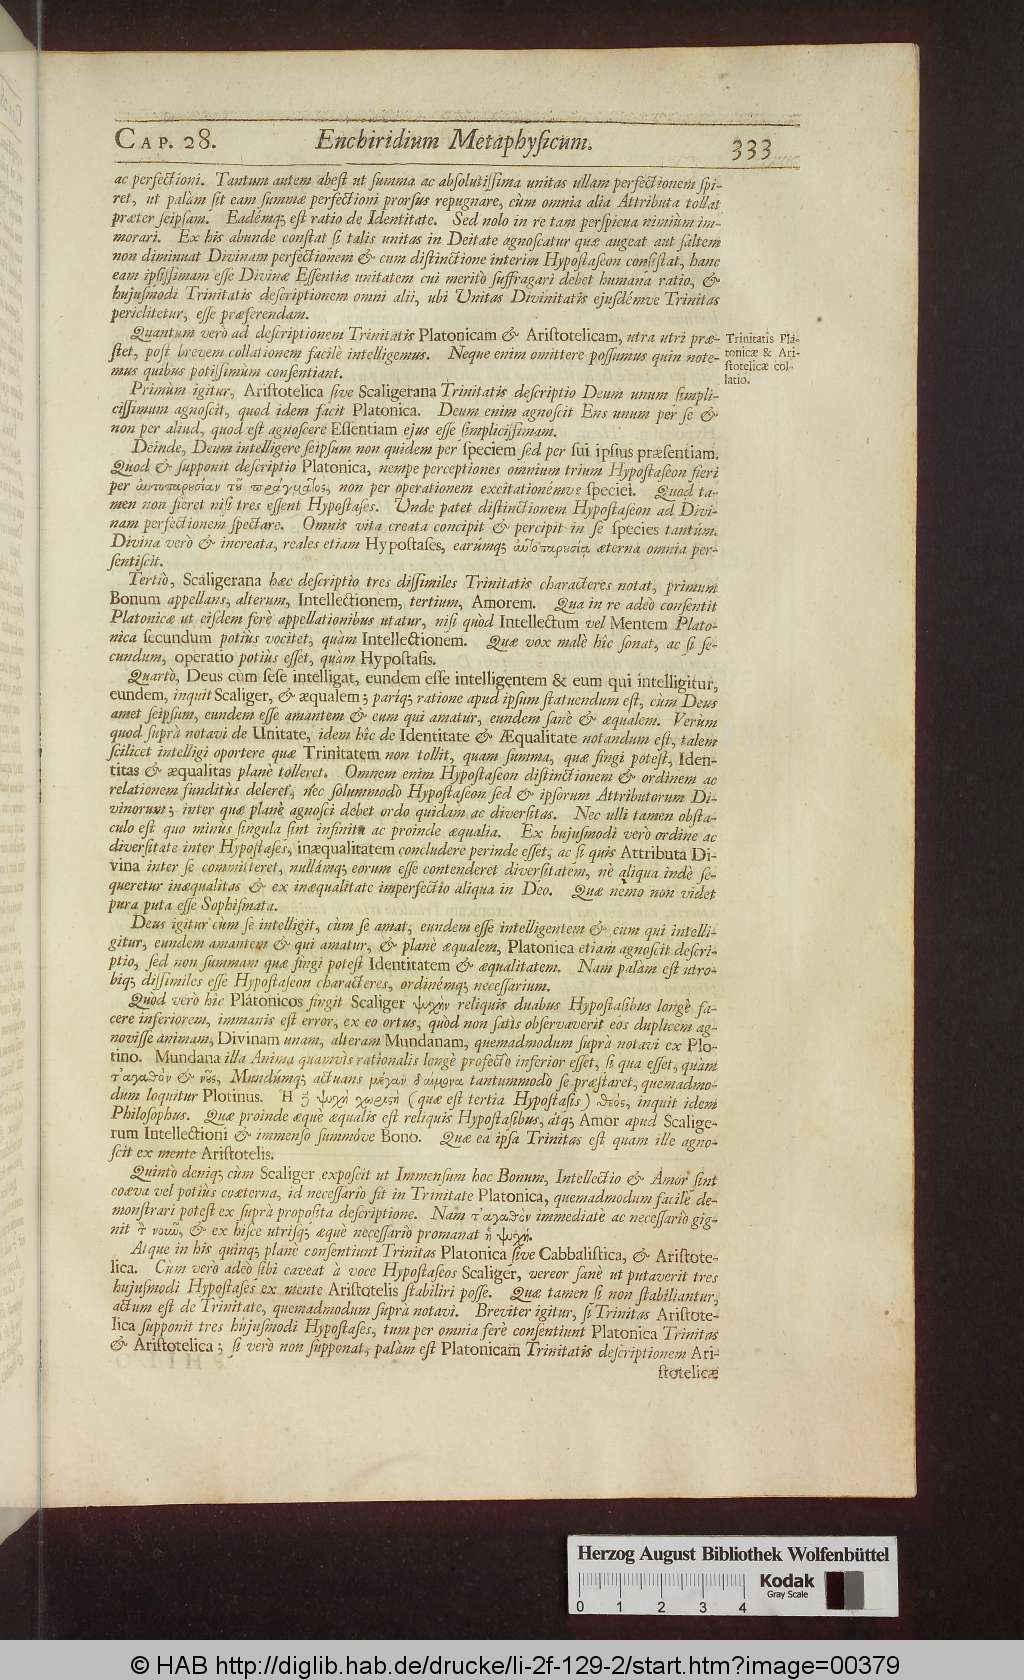 CAP. 28. Enchiridium Metaphysicum. 333
ac perfectioni. Tantum autem abest ut summa ac absolutissima unitas ullam perfectionem spi-
ret, ut palàm sit eam summæ perfectioni prorsus repugnare, cùm omnia alia Attributa tollat
præter seipsam. Eadémq; est ratio de Identitate. Sed nolo in re tam perspicua nimiùm im-
morari. Ex his abunde constat si talis unitas in Deitate agnoscatur quæ augeat aut saltem
non diminuat Divinam perfectionem & cum distinctione interim Hypostaseωn consistat, hanc
eam ipsissimam esse Divinæ Essentiæ unitatem cui meritò suffragari debet humana ratio, &
hujusmodi Trinitatis descriptionem omni alii, ubi Unitas Divinitatis ejusdémve Trinitas
periclitetur, esse præferendam.
Quantum verò ad descriptionem Trinitatis Platonicam & Aristotelicam, utra utri præ-
stet, post brevem collationem facilè intelligemus. Neque enim omittere possumus quin note-
mus quibus potissimùm consentiant.
Trinitatis Pla-
tonicæ & Ari-
stotelicæ col-
latio.
Primùm igitur, Aristotelica sive Scaligerana Trinitatis descriptio Deum unum simpli-
cissimum agnoscit, quod idem facit Platonica. Deum enim agnoscit Ens unum per se &
non per aliud, quod est agnoscere Essentiam ejus esse simplicissimam.
Deinde, Deum intelligere seipsum non quidem per speciem sed per sui ipsius præsentiam.
Quod & supponit descriptio Platonica, nempe perceptiones omnium trium Hypostaseon fieri
per αὐτοπαρουσίαν τοῦ πράγματος, non per operationem excitationémve speciei. Quod ta-
men non fieret nisi tres essent Hypostases. Unde patet distinctionem Hypostaseon ad Divi-
nam perfectionem spectare. Omnis vita creata concipit & percipit in se species tantùm.
Divina verò & increata, reales etiam Hypostases, earúmq; αὐτοπαρουσίᾳ æterna omnia per-
sentiscit.
Tertiò, Scaligerana hæc descriptio tres dissimiles Trinitatis characteres notat, primum
Bonum appellans, alterum, Intellectionem, tertium, Amorem. Qua in re adeò consentit
Platonicæ ut eisdem ferè appellationibus utatur, nisi quòd Intellectum vel Mentem Plato-
nica secundum potiùs vocitet, quàm Intellectionem. Quæ vox malè hîc sonat, ac si se-
cundum, operatio potiùs esset, quàm Hypostasis.
Quartò, Deus cùm sese intelligat, eundem esse intelligentem & eum qui intelligitur,
eundem, inquit Scaliger, & æqualem; paríq; ratione apud ipsum statuendum est, cùm Deus
amet seipsum, eundem esse amantem & eum qui amatur, eundem sanè & æqualem. Verùm
quod suprà notavi de Unitate, idem hîc de Identitate & Æqualitate notandum est, talem
scilicet intelligi oportere quæ Trinitatem non tollit, quam summa, quæ fingi potest, Iden-
titas & æqualitas planè tolleret. Omnem enim Hypostaseon distinctionem & ordinem ac
relationem funditùs deleret, nec solummodò Hypostaseon sed & ipsorum Attributorum Di-
vinorum; inter quæ planè agnosci debet ordo quidam ac diversitas. Nec ulli tamen obsta-
culo est quo minùs singula sint infinita ac proinde æqualia. Ex hujusmodi verò ordine ac
diversitate inter Hypostases, inæqualitatem concludere perinde esset, ac si quis Attributa Di-
vina inter se committeret, nullámq; eorum esse contenderet diversitatem, nè aliqua indè se-
queretur inæqualitas & ex inæqualitate imperfectio aliqua in Deo. Quæ nemo non videt
pura puta esse Sophismata.
Deus igitur cùm se intelligit, cùm se amat, eundem esse intelligentem & eum qui intelli-
gitur, eundem amantem & qui amatur, & planè æqualem, Platonica etiam agnoscit descri-
ptio, sed non summam quæ fingi potest Identitatem & æqualitatem. Nam palàm est utro-
bíq; dissimiles esse Hypostaseon characteres, ordinémq; necessarium.
Quòd verò hîc Platonicos fingit Scaliger ψυχὴν reliquis duabus Hypostasibus longè fa-
cere inferiorem, immanis est error, ex eo ortus, quòd non satìs observaverit eos duplicem ag-
novisse animam, Divinam unam, alteram Mundanam, quemadmodum suprà notavi ex Plo-
tino. Mundana illa Anima quamvis rationalis longè profectò inferior esset, si qua esset, quàm
τ' ἀγαθὸν & νοῦς, Mundúmq; actuans μέγαν δαίμονα tantummodò se præstaret, quemadmo-
dum loquitur Plotinus. Ἡ δὲ ψυχὴ χωριστὴ (quæ est tertia Hypostasis) θεός, inquit idem
Philosophus. Quæ proinde æquè æqualis est reliquis Hypostasibus, átq; Amor apud Scalige-
rum Intellectioni & immenso summóve Bono. Quæ ea ipsa Trinitas est quam ille agno-
scit ex mente Aristotelis.
Quintò deniq; cùm Scaliger exposcit ut Immensum hoc Bonum, Intellectio & Amor sint
coæva vel potiùs coæterna, id necessariò fit in Trinitate Platonica, quemadmodum facilè de-
monstrari potest ex suprà proposita descriptione. Nam τ' ἀγαθὸν immediatè ac necessariò gig-
nit τὸν νοῦν, & ex hisce utrisq; æquè necessariò promanat ἡ ψυχή.
Atque in his quinq; planè consentiunt Trinitas Platonica sive Cabbalistica, & Aristote-
lica. Cùm verò adeò sibi caveat à voce Hypostaseos Scaliger, vereor sanè ut putaverit tres
hujusmodi Hypostases ex mente Aristotelis stabiliri posse. Quæ tamen si non stabiliantur,
actum est de Trinitate, quemadmodum suprà notavi. Breviter igitur, si Trinitas Aristote-
lica supponit tres hujusmodi Hypostases, tum per omnia ferè consentiunt Platonica Trinitas
& Aristotelica; si verò non supponat, palàm est Platonicam Trinitatis descriptionem Ari-
stotelicæ
Herzog August Bibliothek Wolfenbüttel
Kodak
Gray Scale
0 1 2 3 4
© HAB http://diglib.hab.de/drucke/li-2f-129-2/start.htm?image=00379